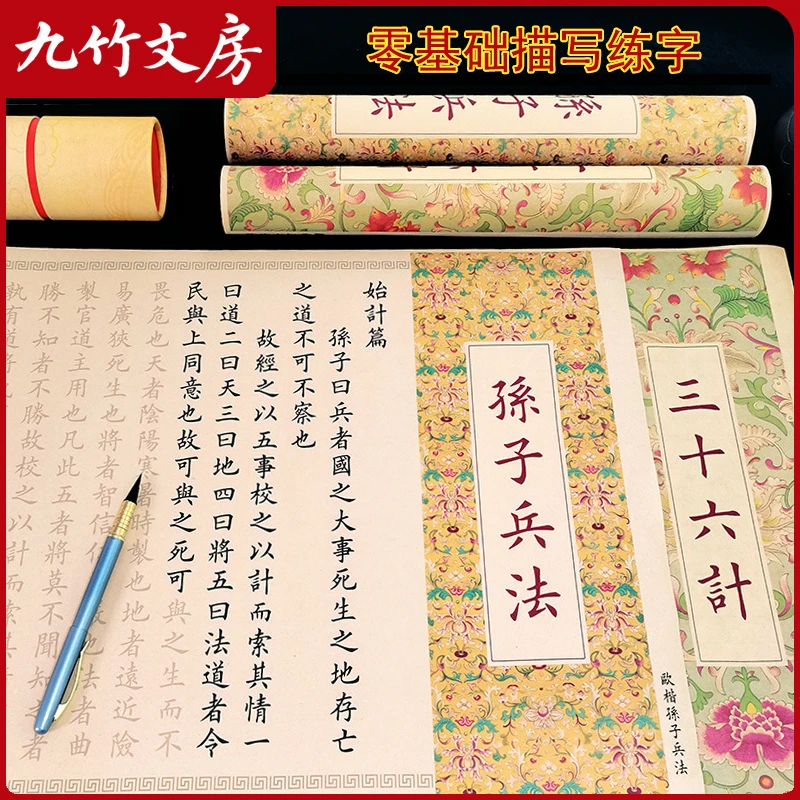 九竹文房
零基础描写练字
孫子兵法
三十六計
歐楷孫子兵法
孫子兵法
始計篇
孫子曰兵者國之大事死生之地存亡
之道不可不察也
故經之以五事校之以計而索其情一
曰道二曰天三曰地四曰將五曰法道者令
民與上同意也故可與之死可與之生而不
畏危也天者陰陽寒暑時製也地者遠近險
易廣狹死生也將者智信也法者曲
製官道主用也凡此五者將莫不聞知之者
勝不知者不勝故校之以計而索其
孰有道將